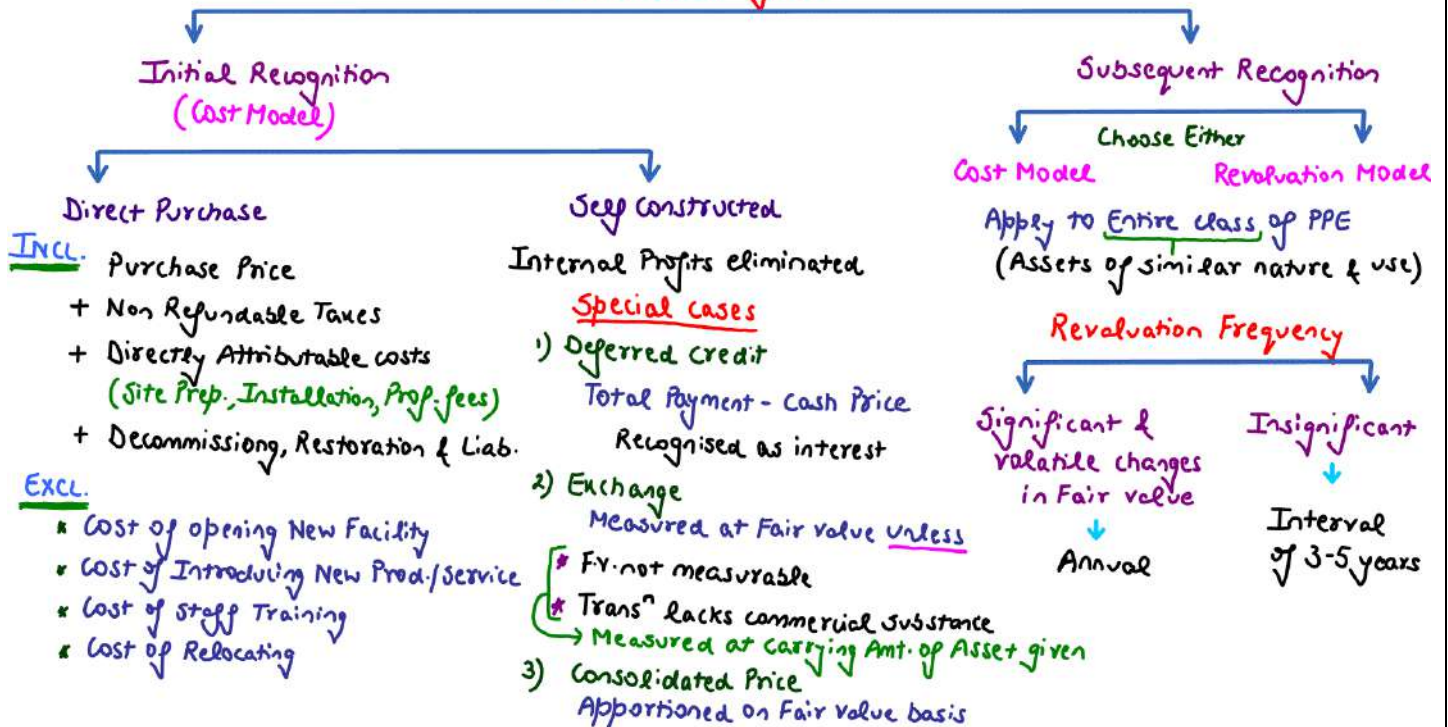 Initial Recognition
(Cost Model)
Direct Purchase
INCL.
Purchase Price
+ Non Refundable Taxes
+ Directly Attributable costs
(Site Prep., Installation, Prof. fees)
+ Decommissiong, Restoration & Liab.
EXCL.
* Cost of opening New Facility
* Cost of Introducing New Prod./Service
* Cost of Staff Training
* Cost of Relocating
Self Constructed
Internal Profits eliminated
Special Cases
1) Deferred Credit
Total Payment - Cash Price
Recognised as interest
2) Exchange
Measured at Fair value unless
* F.v. not measurable
* Transⁿ lacks commercial substance
→ Measured at Carrying Amt. of Asset given
3) Consolidated Price
Apportioned on Fair value basis
Subsequent Recognition
Choose Either
Cost Model
Revaluation Model
Apply to Entire class of PPE
(Assets of similar nature & use)
Revaluation Frequency
Significant &
volatile changes
in Fair value
Annual
Insignificant
Interval
of 3-5 years